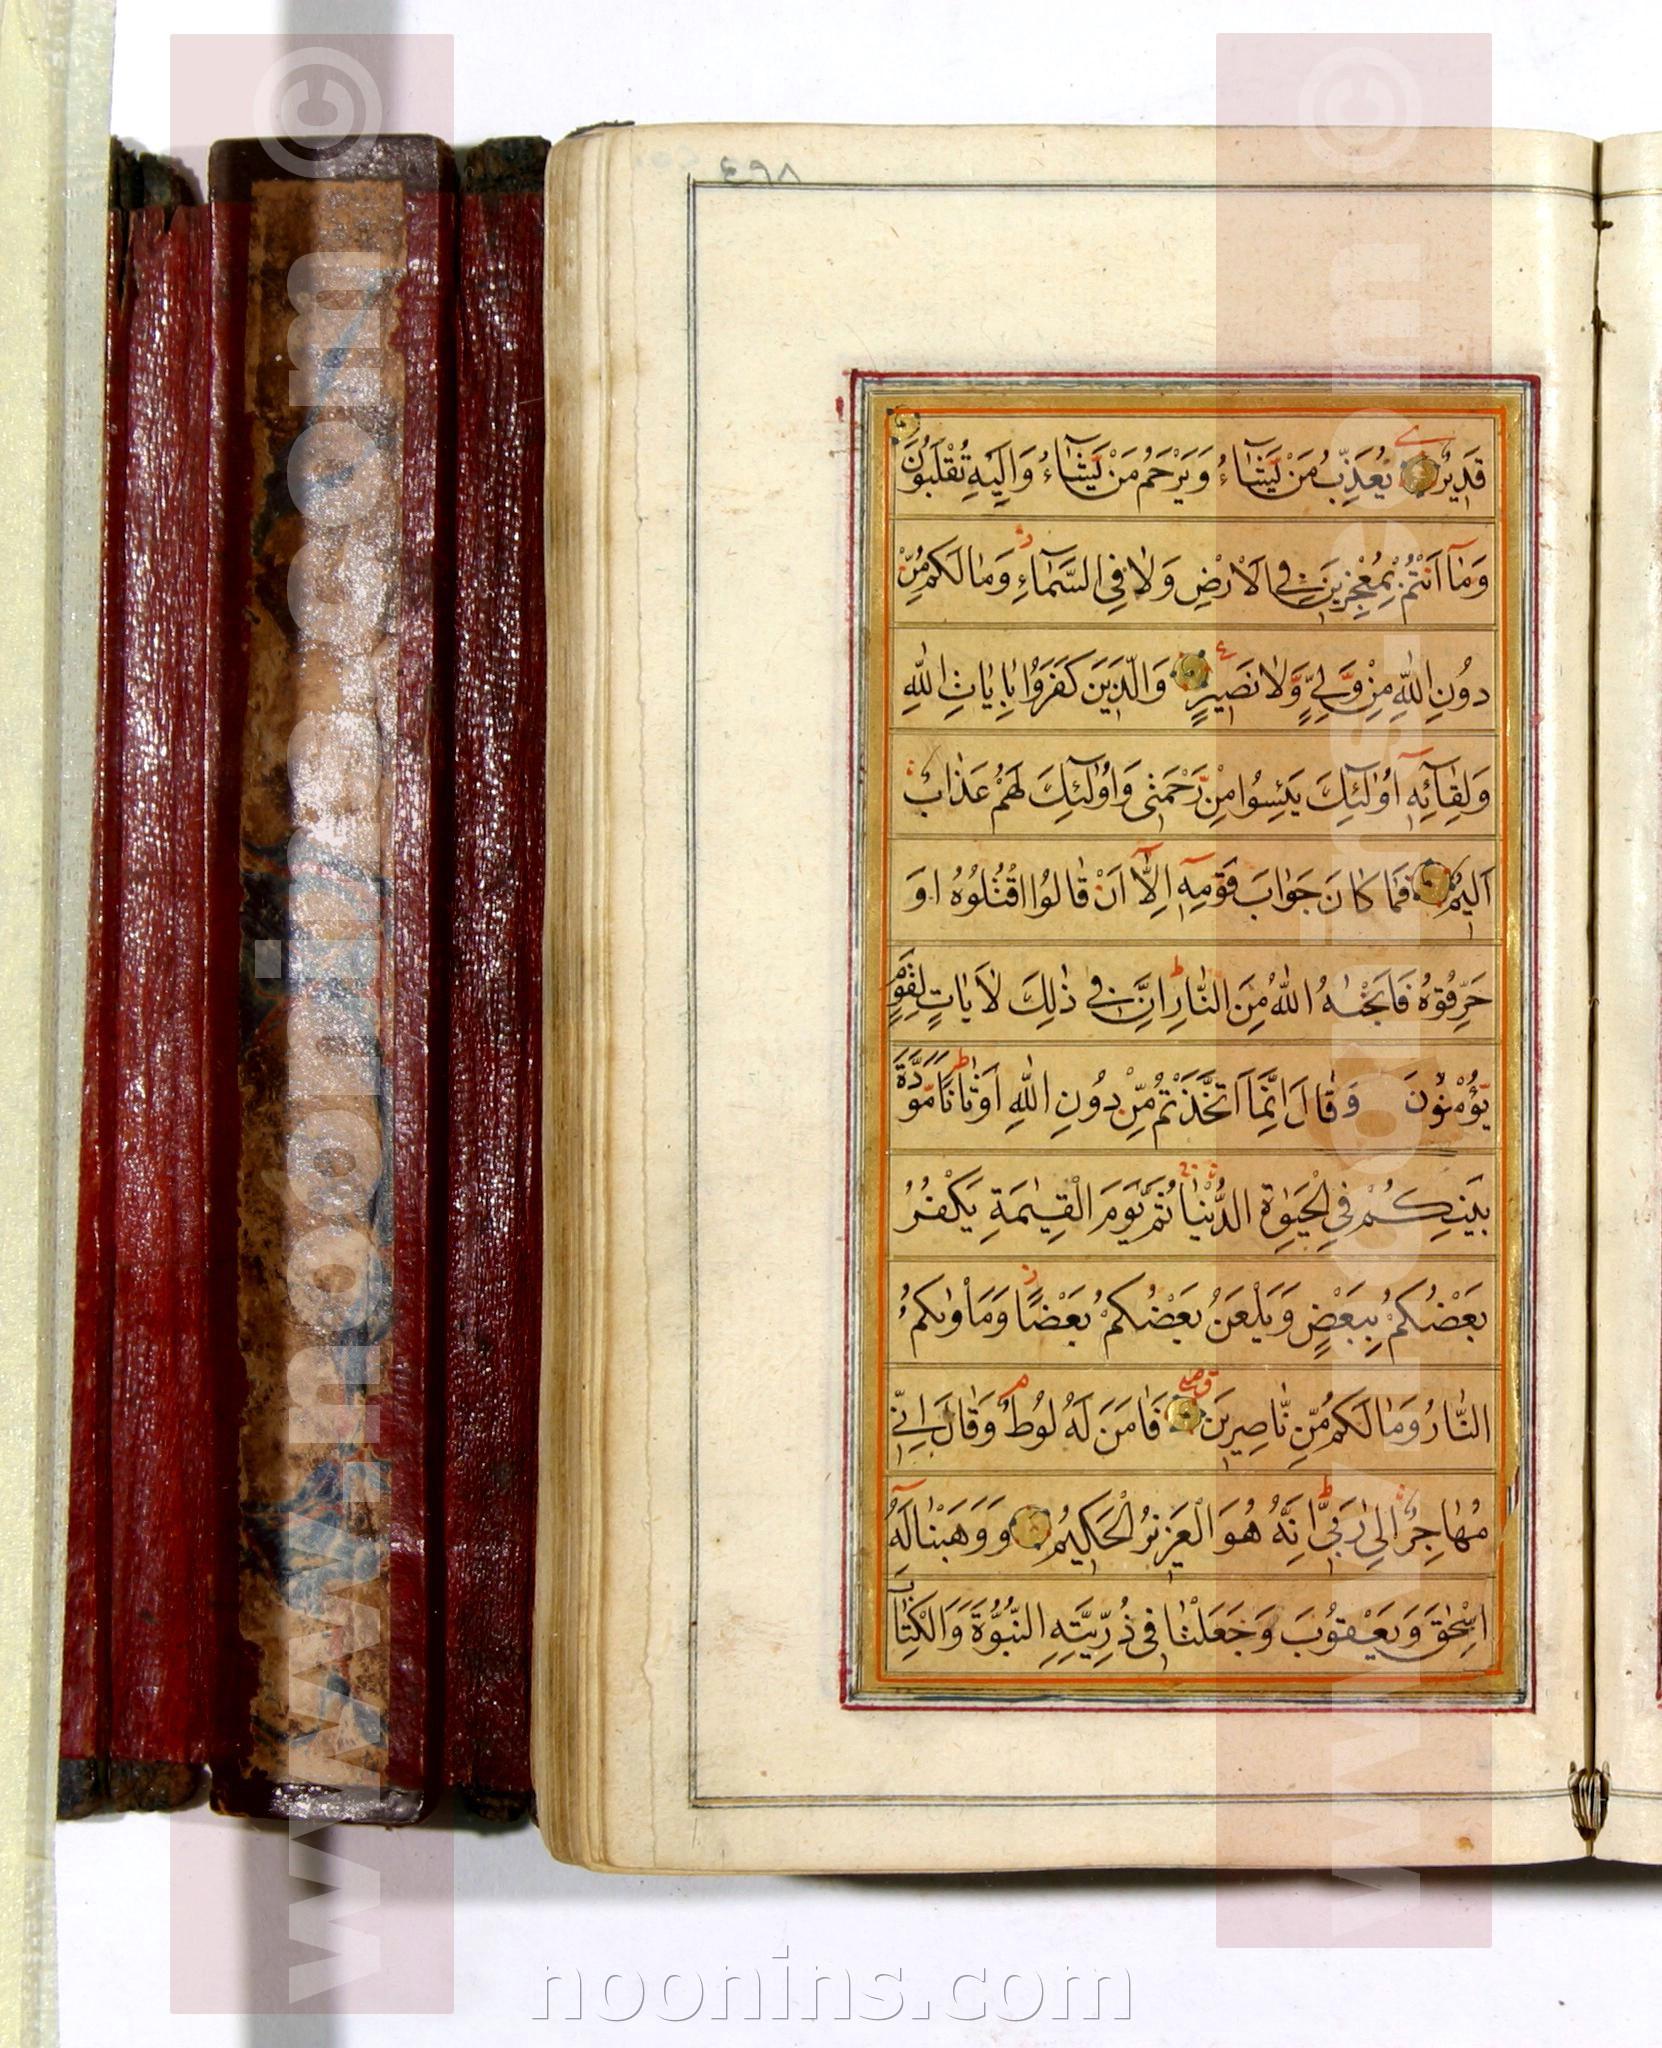 ٤٩٨
قَدِيرٌ يُعَذِّبُ مَنْ يَشَاءُ وَيَرْحَمُ مَنْ يَشَاءُ وَاِلَيْهِ تُقْلَبُونَ
وَمَا اَنْتُمْ بِمُعْجِزِينَ فِي الْاَرْضِ وَلَا فِي السَّمَاءِ وَمَا لَكُمْ مِنْ
دُونِ اللّٰهِ مِنْ وَلِيٍّ وَلَا نَصِيرٍ وَالَّذِينَ كَفَرُوا بِاٰيَاتِ اللّٰهِ
وَلِقَائِهِ اُولٰئِكَ يَئِسُوا مِنْ رَحْمَتِي وَاُولٰئِكَ لَهُمْ عَذَابٌ
اَلِيمٌ فَمَا كَانَ جَوَابَ قَوْمِهِ اِلَّا اَنْ قَالُوا اقْتُلُوهُ اَوْ
حَرِّقُوهُ فَاَنْجٰيهُ اللّٰهُ مِنَ النَّارِ اِنَّ فِي ذٰلِكَ لَاٰيَاتٍ لِقَوْمٍ
يُؤْمِنُونَ وَقَالَ اِنَّمَا اتَّخَذْتُمْ مِنْ دُونِ اللّٰهِ اَوْثَانًا مَوَدَّةَ
بَيْنِكُمْ فِي الْحَيٰوةِ الدُّنْيَا ثُمَّ يَوْمَ الْقِيٰمَةِ يَكْفُرُ
بَعْضُكُمْ بِبَعْضٍ وَيَلْعَنُ بَعْضُكُمْ بَعْضًا وَمَاْوٰيكُمُ
النَّارُ وَمَا لَكُمْ مِنْ نَاصِرِينَ فَاٰمَنَ لَهُ لُوطٌ وَقَالَ اِنِّي
مُهَاجِرٌ اِلٰى رَبِّي اِنَّهُ هُوَ الْعَزِيزُ الْحَكِيمُ وَوَهَبْنَا لَهُ
اِسْحٰقَ وَيَعْقُوبَ وَجَعَلْنَا فِي ذُرِّيَّتِهِ النُّبُوَّةَ وَالْكِتَابَ
www.noonins.com ©
www.noonins.com ©
noonins.com